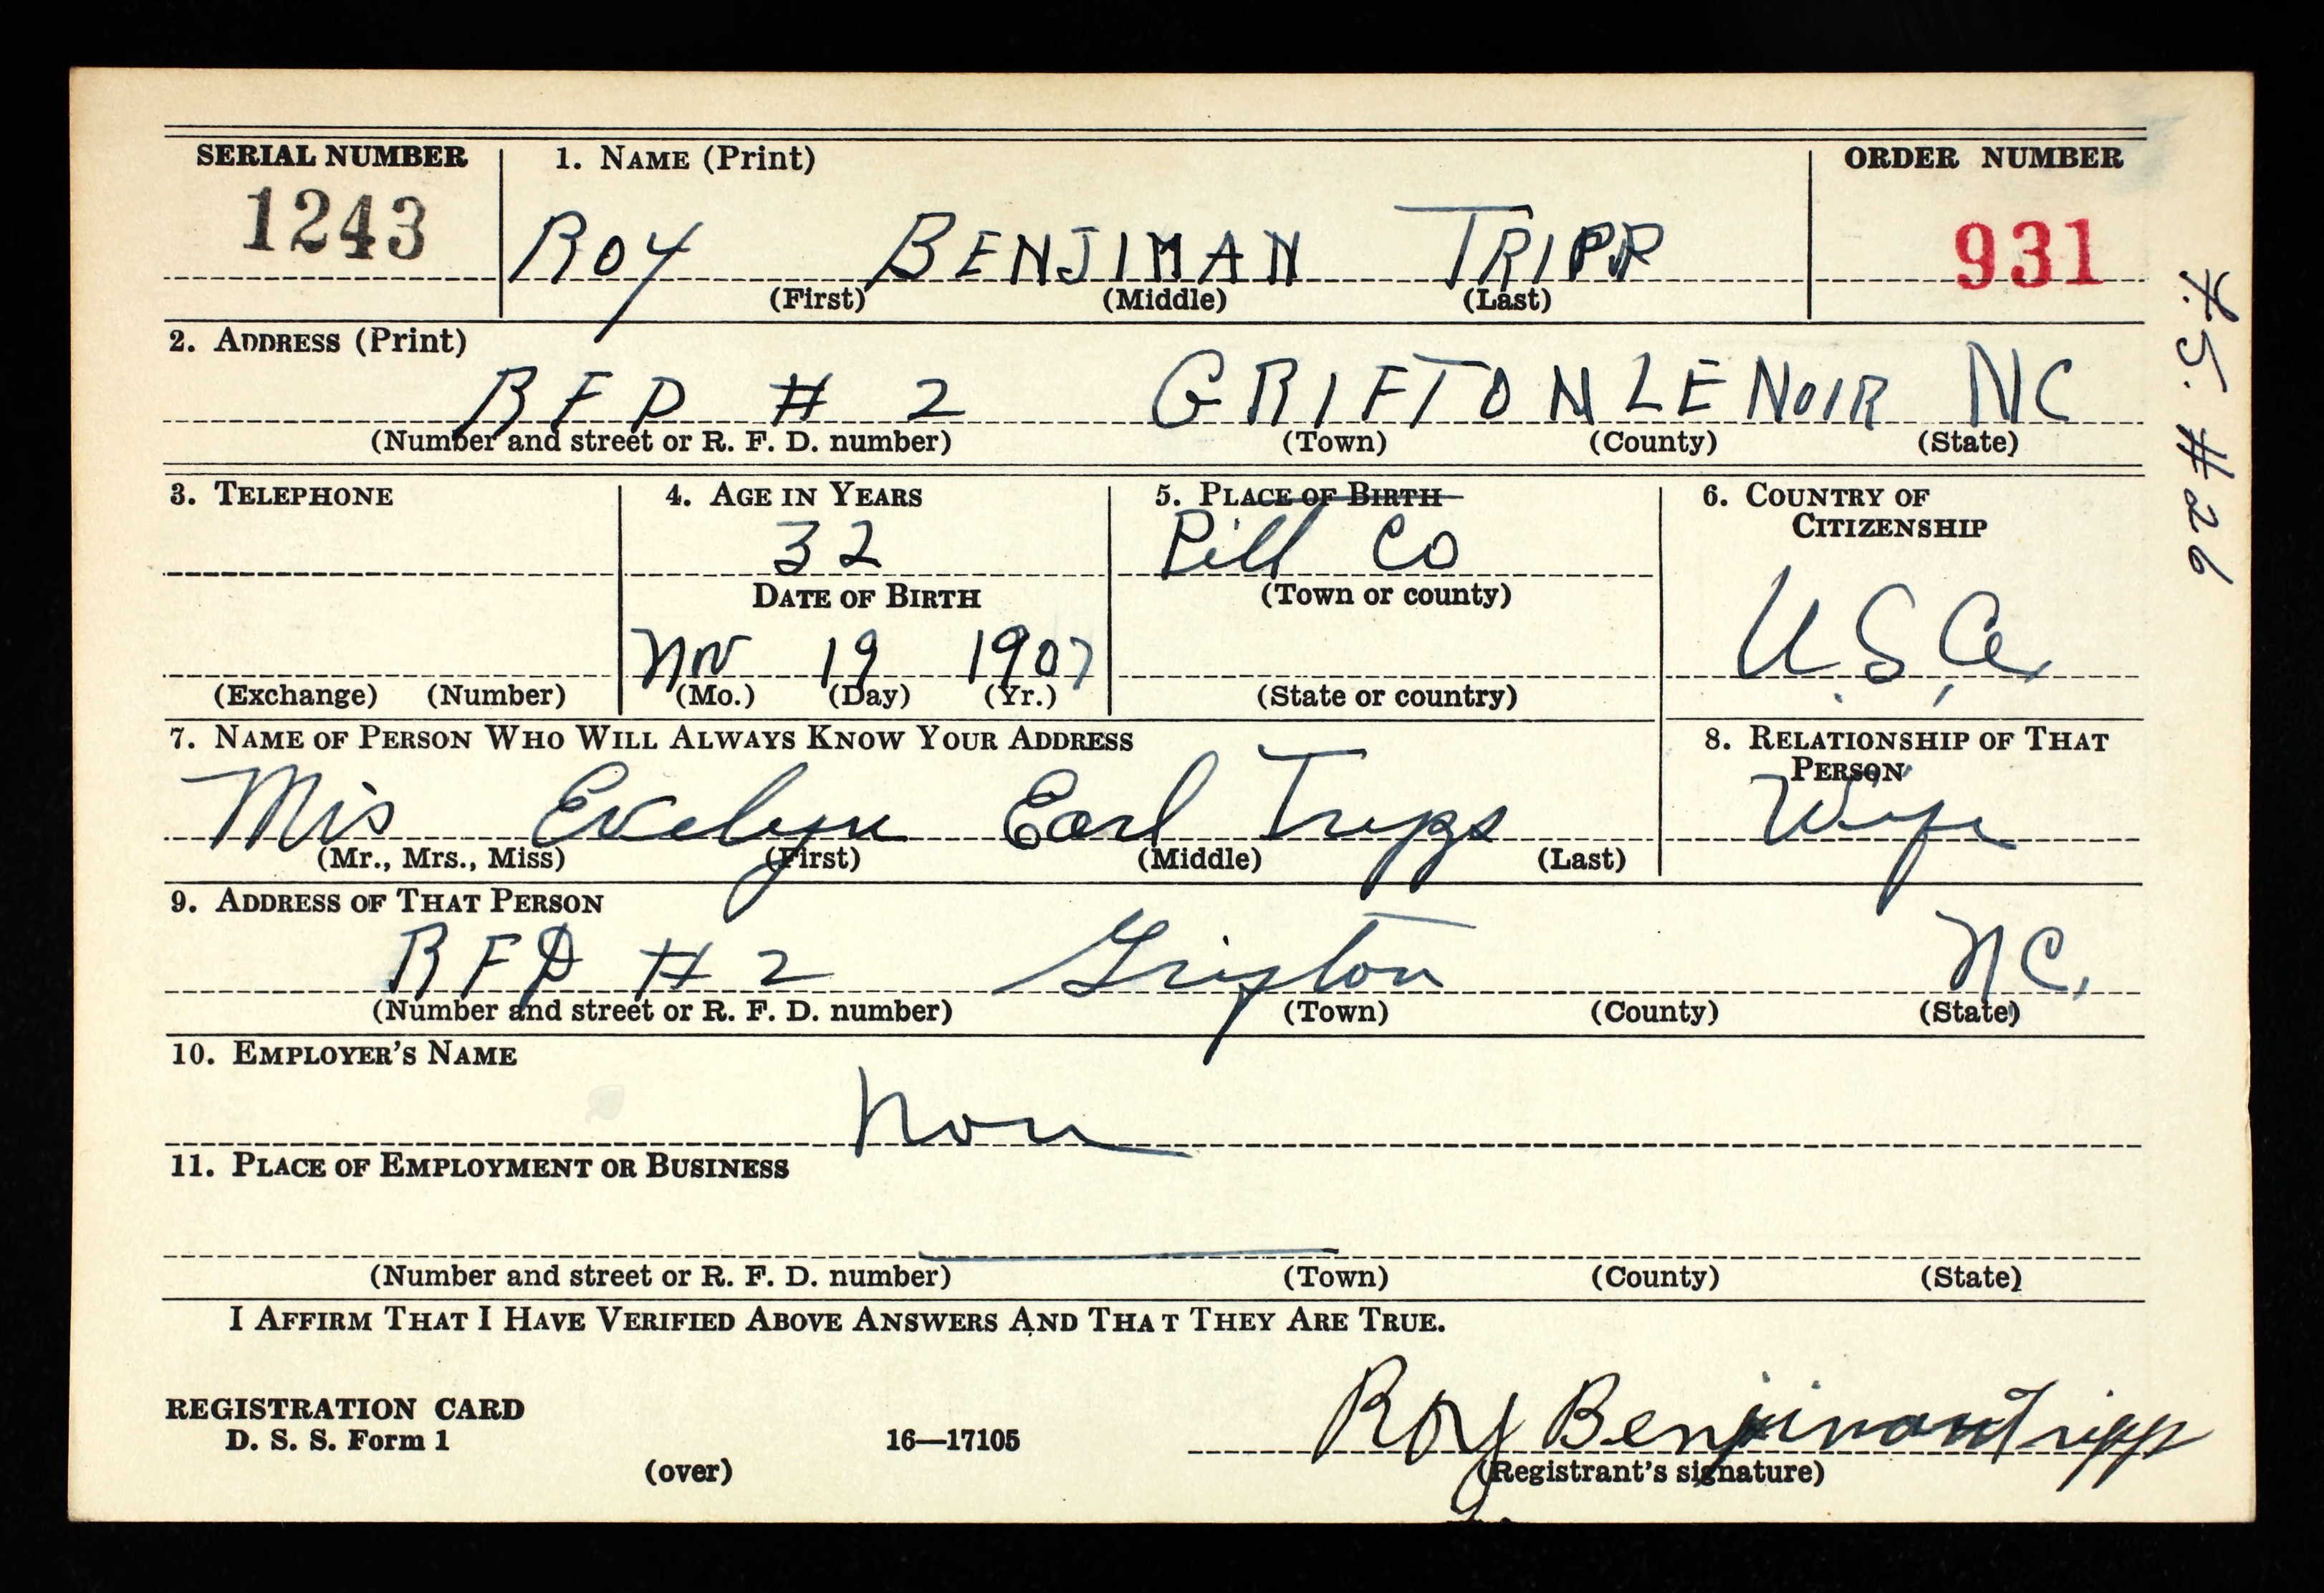 SERIAL NUMBER 1. NAME (Print) ORDER NUMBER
1243 ROY BENJIMAN TRIPP 931
(First) (Middle) (Last)
2. ADDRESS (Print)
RFD # 2 GRIFTON LENOIR NC
(Number and street or R. F. D. number) (Town) (County) (State)
3. TELEPHONE 4. AGE IN YEARS 5. PLACE OF BIRTH 6. COUNTRY OF
CITIZENSHIP
32 Pitt Co
DATE OF BIRTH (Town or county)
Nov 19 1907 U.S.A.
(Exchange) (Number) (Mo.) (Day) (Yr.) (State or country)
7. NAME OF PERSON WHO WILL ALWAYS KNOW YOUR ADDRESS 8. RELATIONSHIP OF THAT
PERSON
Mrs Evelyn Earl Tripp Wife
(Mr., Mrs., Miss) (First) (Middle) (Last)
9. ADDRESS OF THAT PERSON
RFD # 2 Grifton NC.
(Number and street or R. F. D. number) (Town) (County) (State)
10. EMPLOYER'S NAME
Non
11. PLACE OF EMPLOYMENT OR BUSINESS
(Number and street or R. F. D. number) (Town) (County) (State)
I AFFIRM THAT I HAVE VERIFIED ABOVE ANSWERS AND THAT THEY ARE TRUE.
REGISTRATION CARD
D. S. S. Form 1 16—17105 Roy Benjiman Tripp
(over) (Registrant's signature)
#26